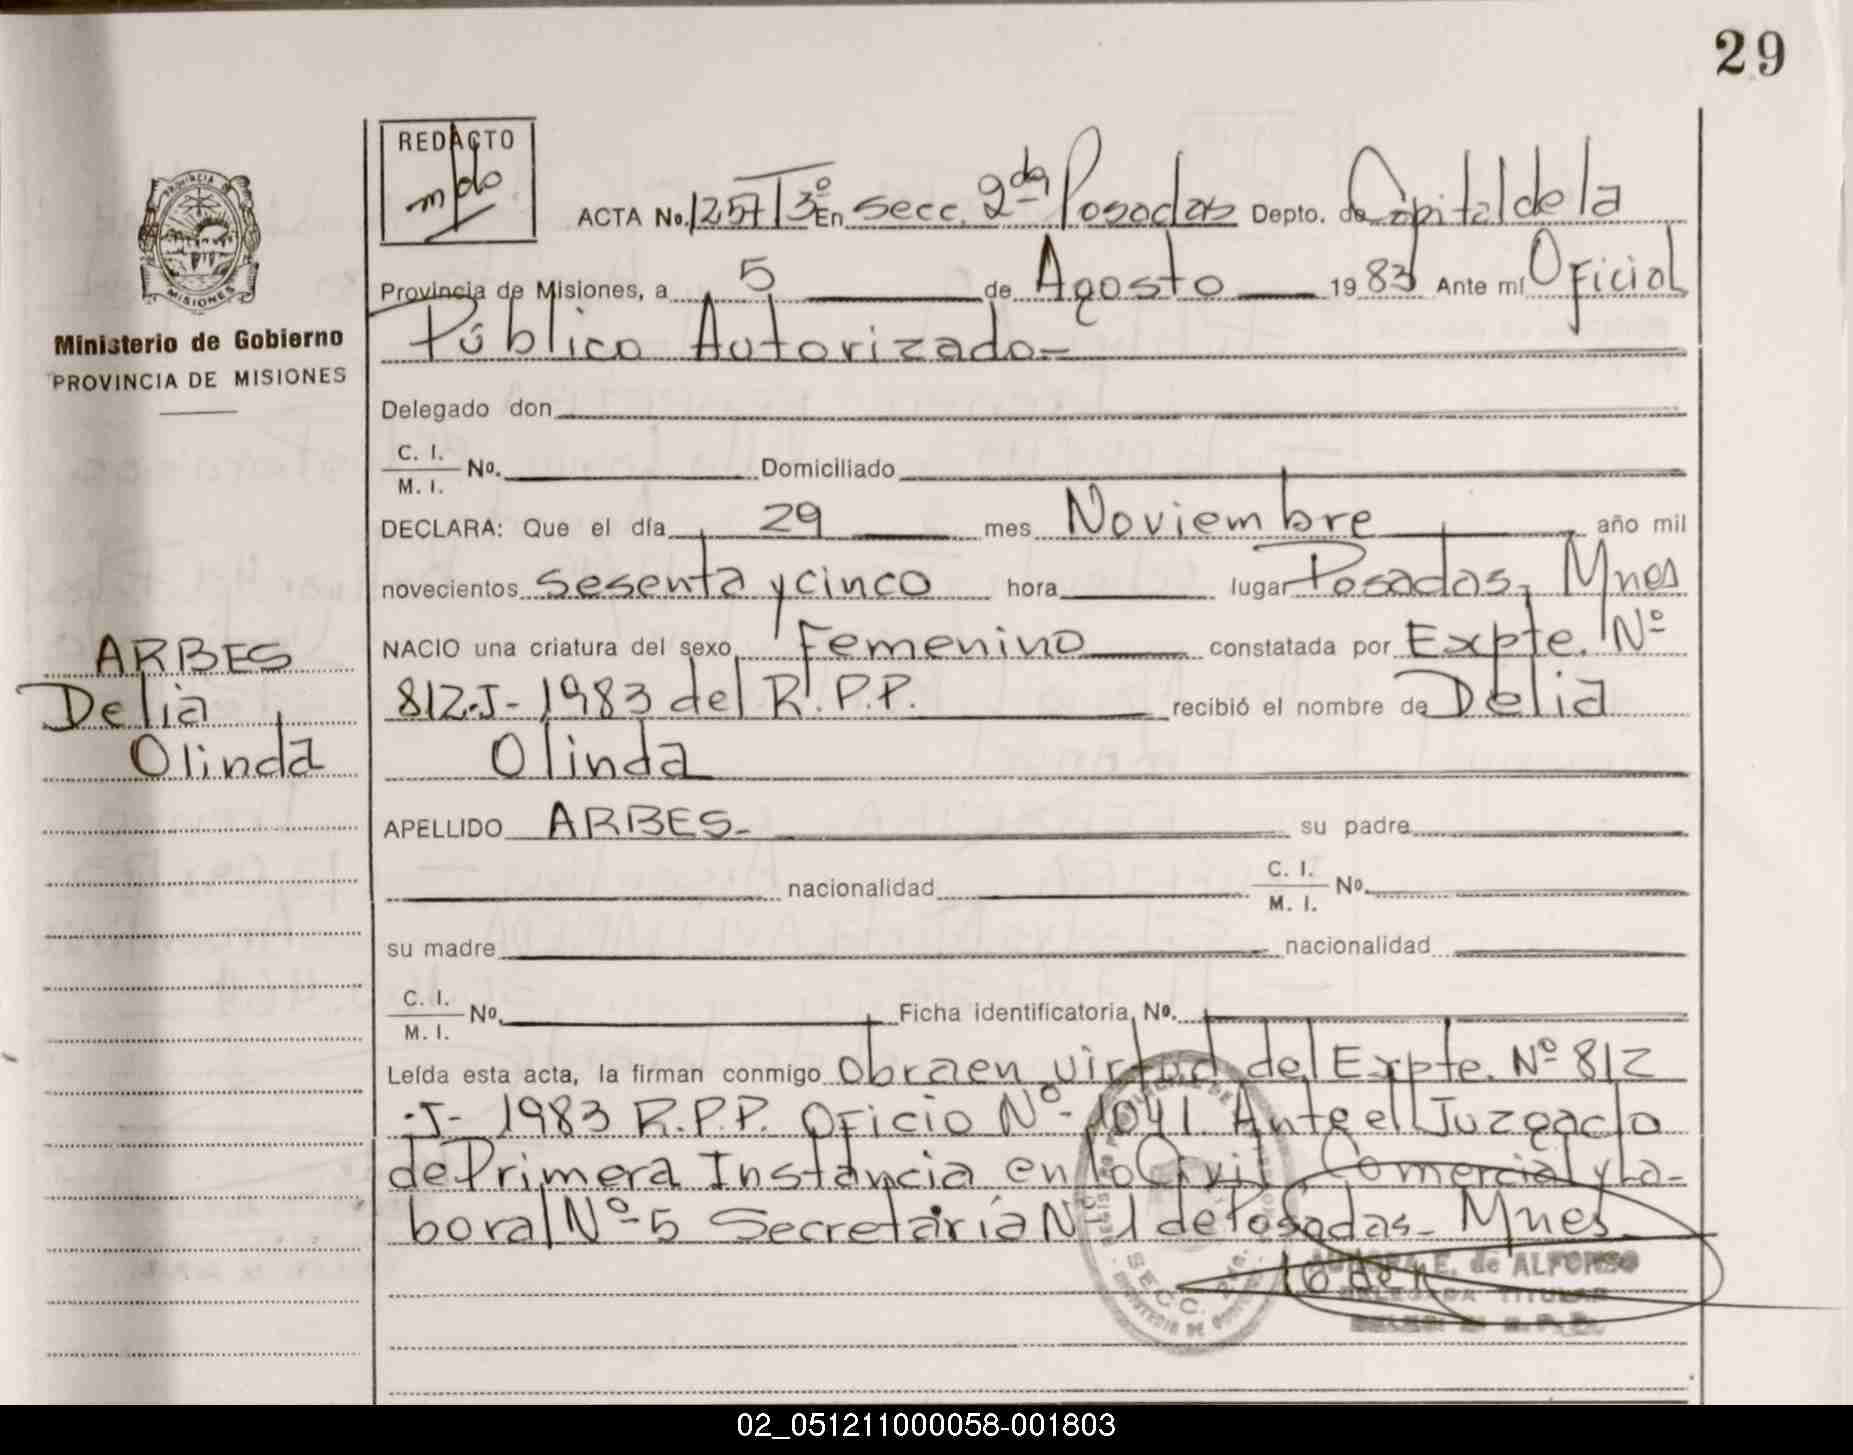 29
REDACTO
ACTA No. 1257 T 3º En secc. 2da Posadas Depto. de Capital de la
Provincia de Misiones, a 5 de Agosto 1983 Ante mí Oficial
Público Autorizado-
Ministerio de Gobierno
PROVINCIA DE MISIONES
Delegado don
C. I.
M. I. No. Domiciliado
DECLARA: Que el día 29 mes Noviembre año mil
novecientos sesenta y cinco hora lugar Posadas, Mnes
NACIO una criatura del sexo Femenino constatada por Expte. Nº
812-J-1983 del R.P.P. recibió el nombre de Delia
Olinda
ARBES
Delia
Olinda
APELLIDO ARBES- su padre
nacionalidad C. I.
M. I. No.
su madre nacionalidad
C. I.
M. I. No. Ficha identificatoria No.
Leída esta acta, la firman conmigo obra en virtud del Expte. Nº 812
-J- 1983 R.P.P. Oficio Nº- 1041. Ante el Juzgado
de Primera Instancia en lo Civil, Comercial y La-
boral Nº-5 Secretaría Nº-1 de Posadas- Mnes.
E. de ALFONSO
DELEGADA TITULAR
SECC. 2da.
02_051211000058-001803